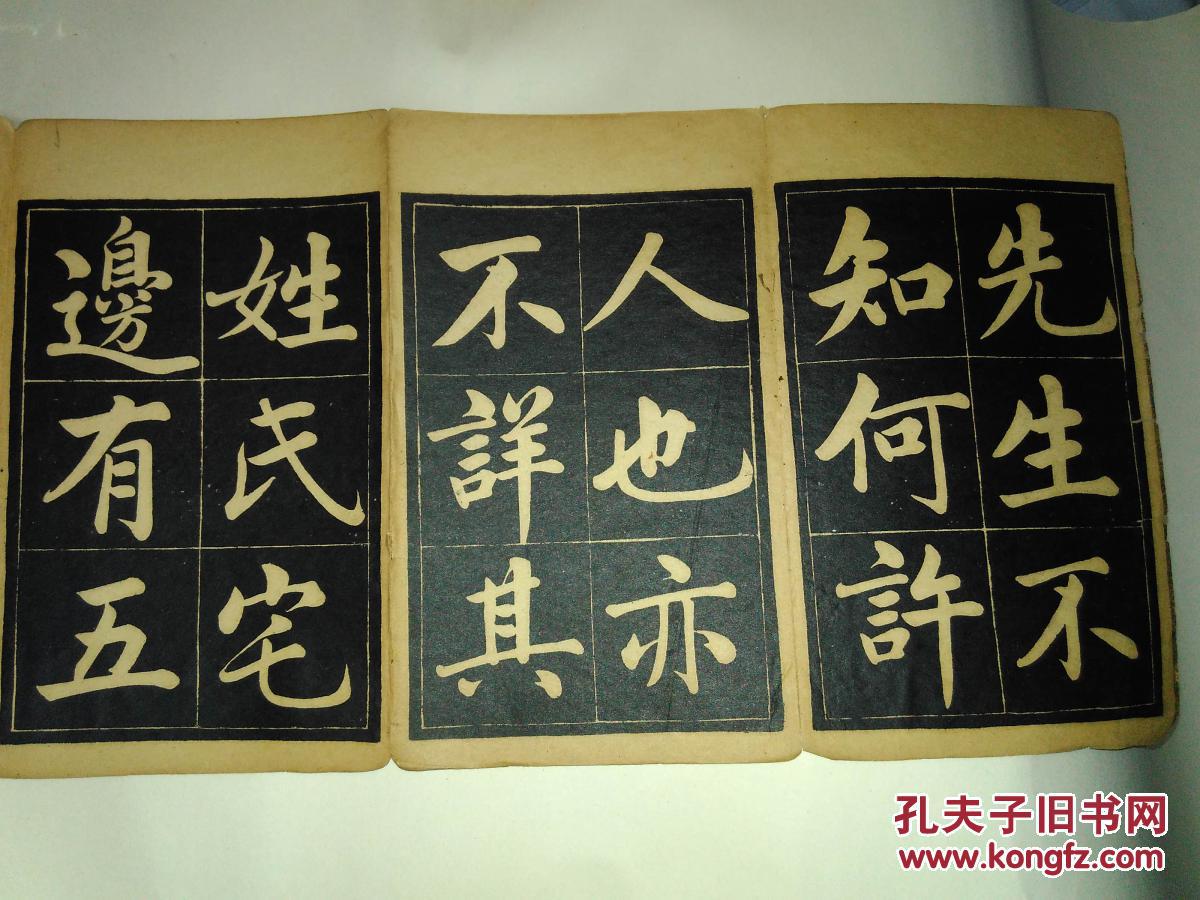 先生不
知何許
人也亦
不詳其
姓氏宅
邊有五
孔夫子旧书网
www.kongfz.com